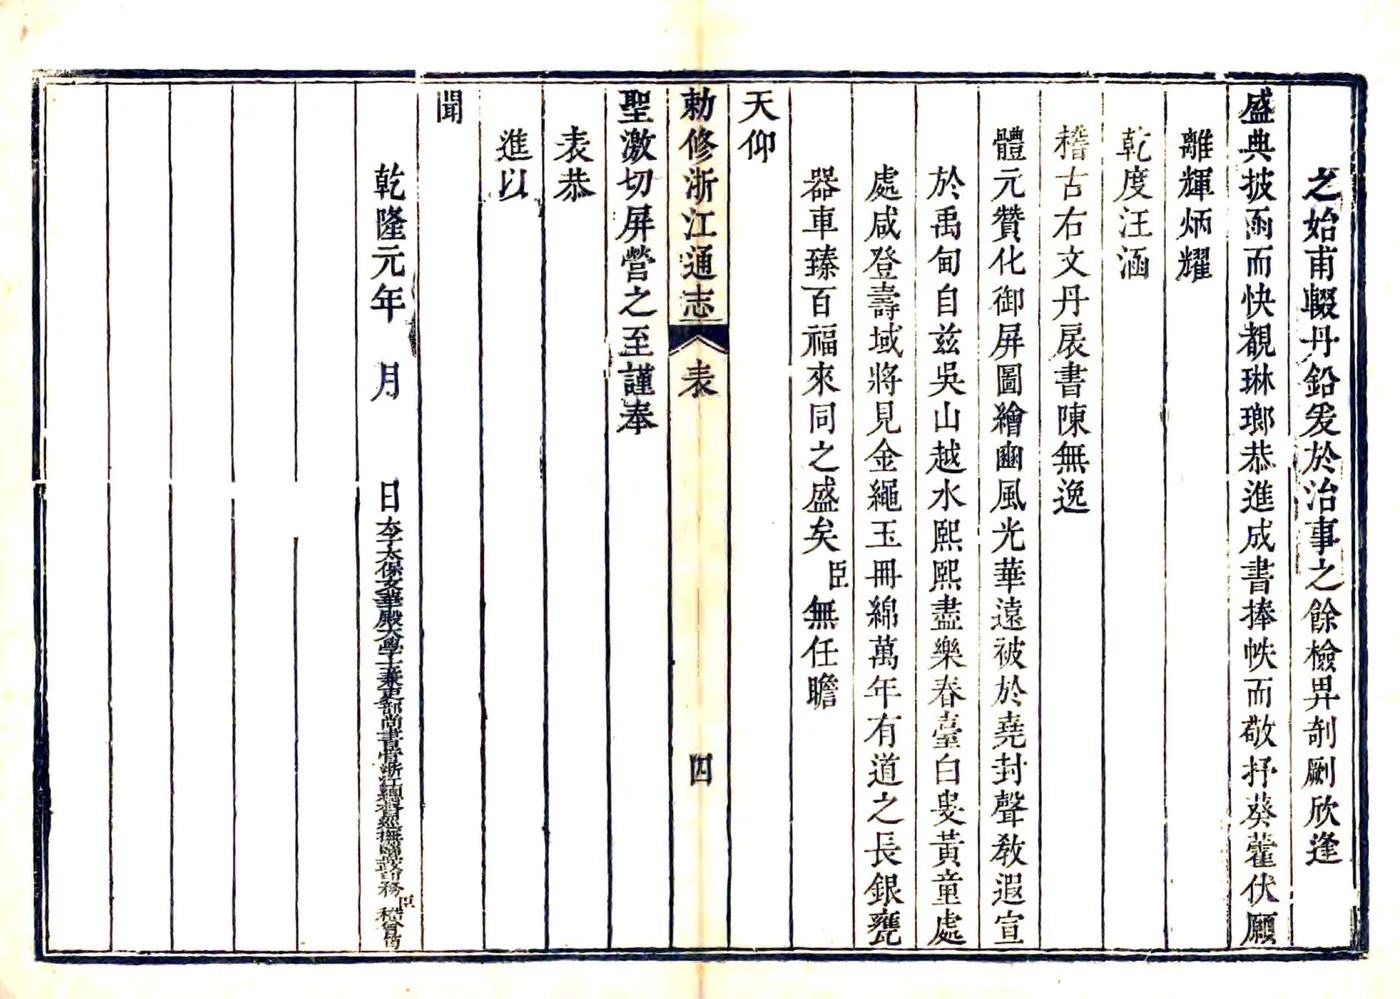 之始甫輟丹鉛爰於治事之餘檢畀剞劂欣逢
盛典披函而快覩琳瑯恭進成書捧帙而敬抒葵藿伏願
離輝炳耀
乾度汪涵
稽古右文丹扆書陳無逸
體元贊化御屏圖繪豳風光華遠被於堯封聲教遐宣
於禹甸自茲吳山越水熙熙盡樂春臺白叟黃童處
處咸登壽域將見金繩玉冊綿萬年有道之長銀甕
器車臻百福來同之盛矣臣無任瞻
天仰
勅修浙江通志 表 四
聖激切屏營之至謹奉
表恭
進以
聞
乾隆元年 月 日 太保文華殿大學士兼吏部尚書管浙江總督巡撫鹽政諸務臣嵇曾筠